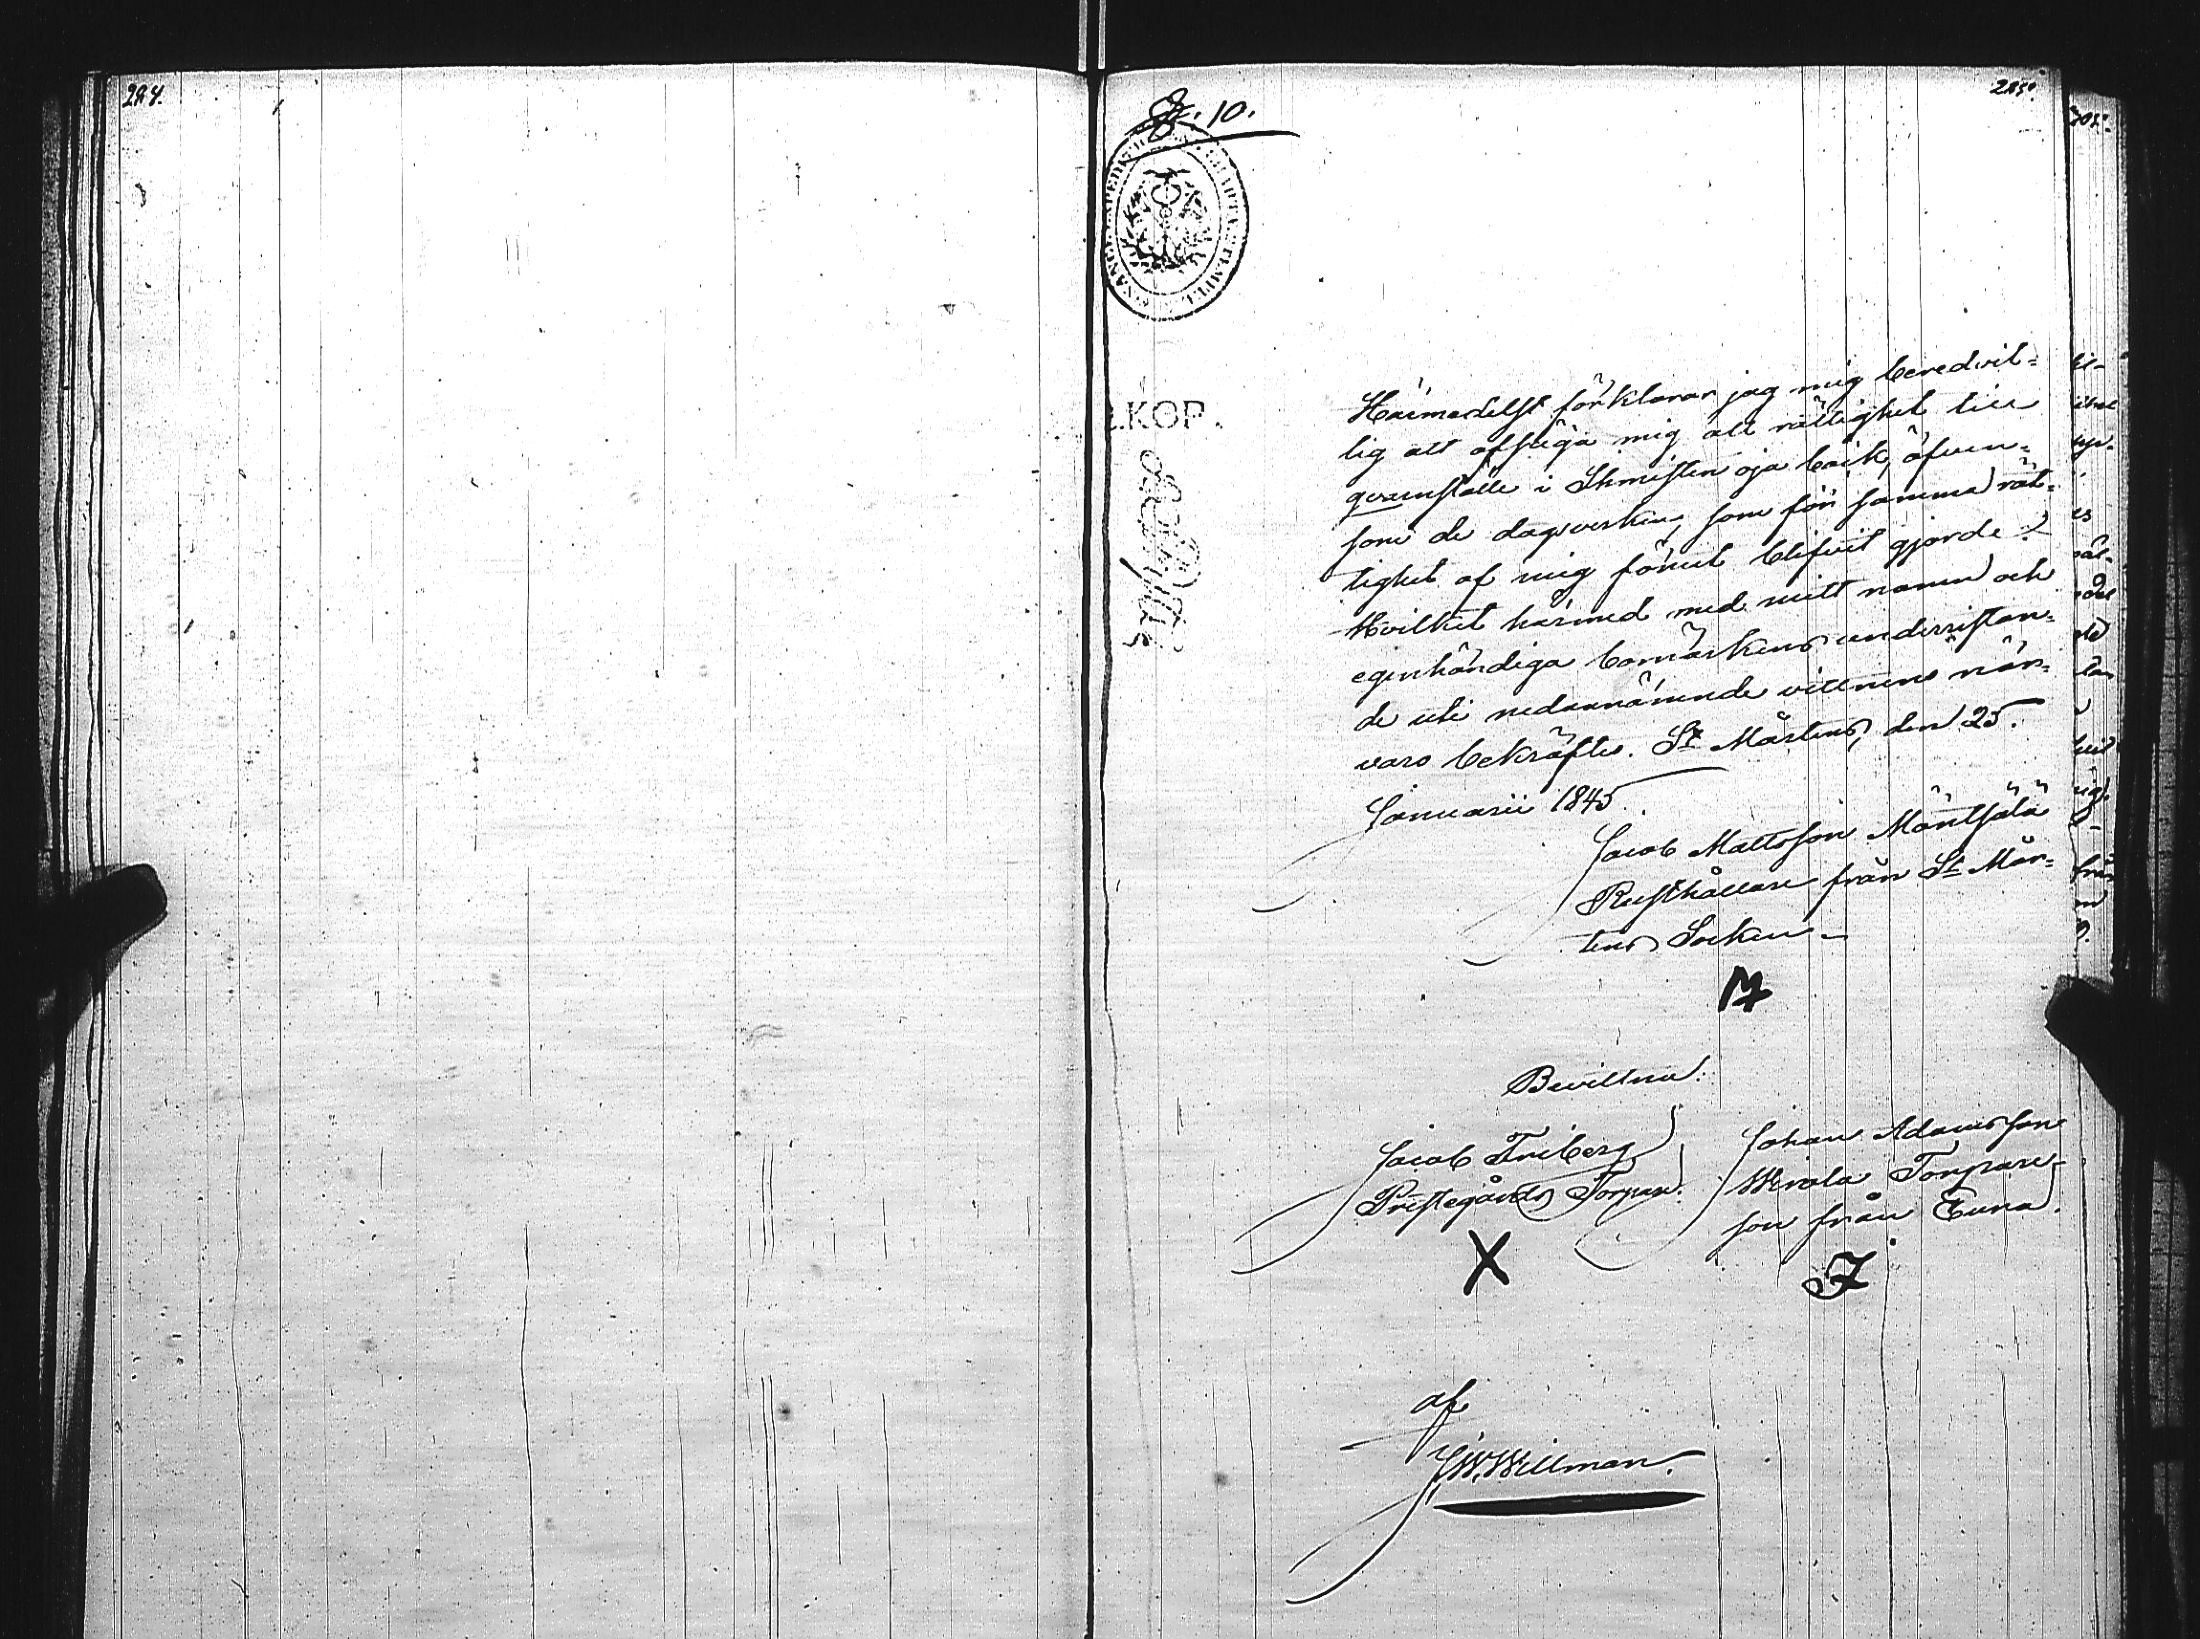 284.
285.
10.
KOP.
Härmedelst förklarar jag mig beredvil=
lig att afsäga mig all rättighet till
qvarnställe i Thmisten oja bäck, äfven=
som de dagsverken, som för samma rät=
tighet af mig förut blifvit gjorde
Hvilket härmed med mitt namn och
egenhändiga bomärkens underristan=
de uti nedannämnde vittnens när=
varo bekräftes. St Mårtens, den 25.
Januarii 1845.
Jacob Mattsson Mäntsälä
Rusthållare från St Mår=
tens Socken
M
Bevittna:
Jacob Friberg
Prestegårds Torpare.
X
Johan Adamsson
Torpare
son från
J
af
J W. Willman.